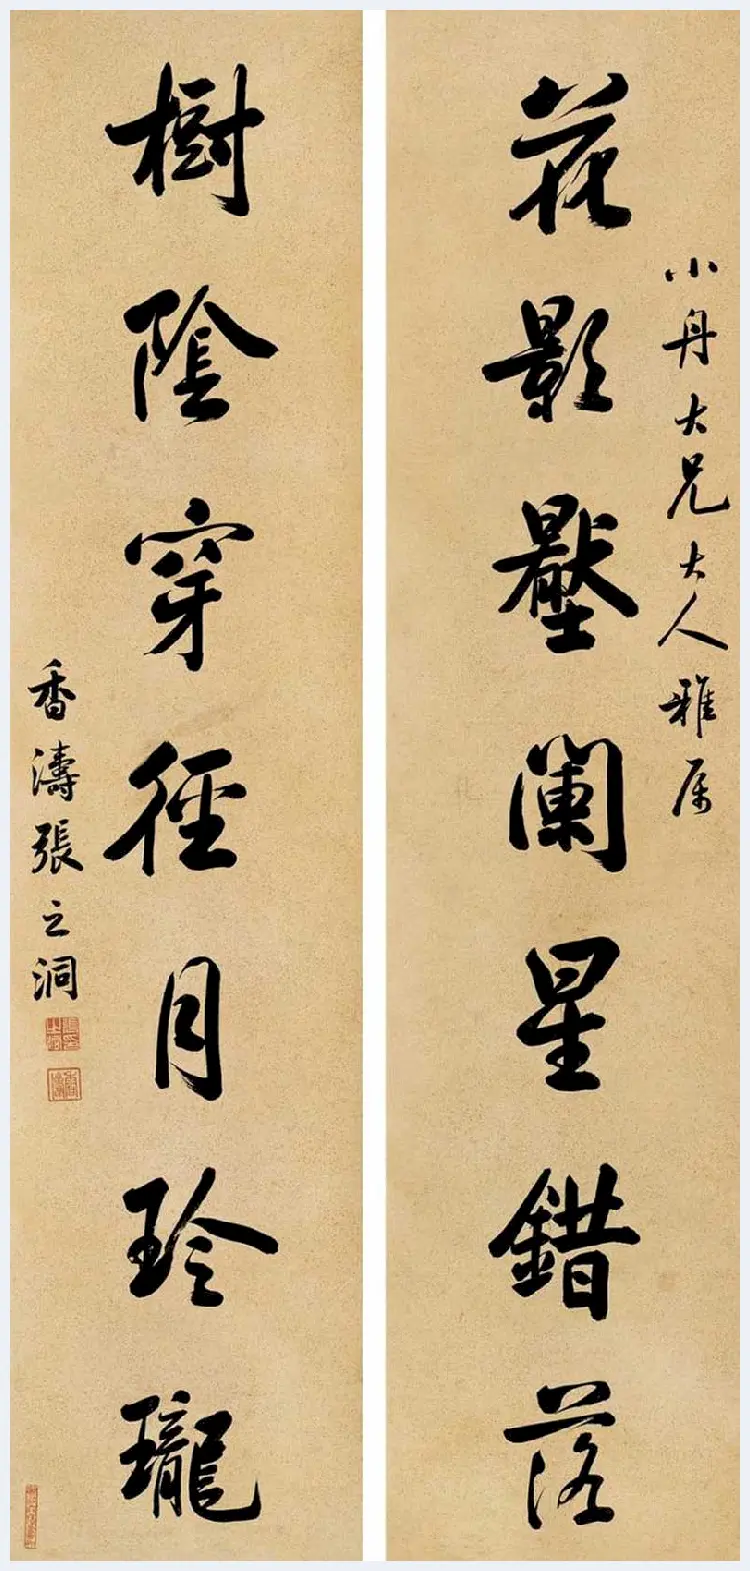 花影壓闌星錯落
小舟大兄大人雅属
樹隂穿徑月玲瓏
香濤張之洞